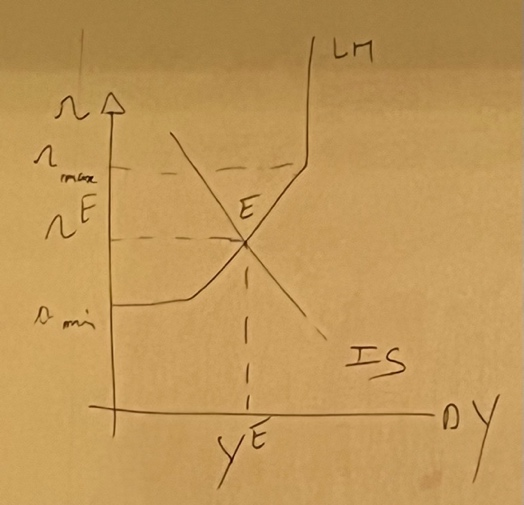 LM
r
r max
E
r E
r min
IS
Y
Y E